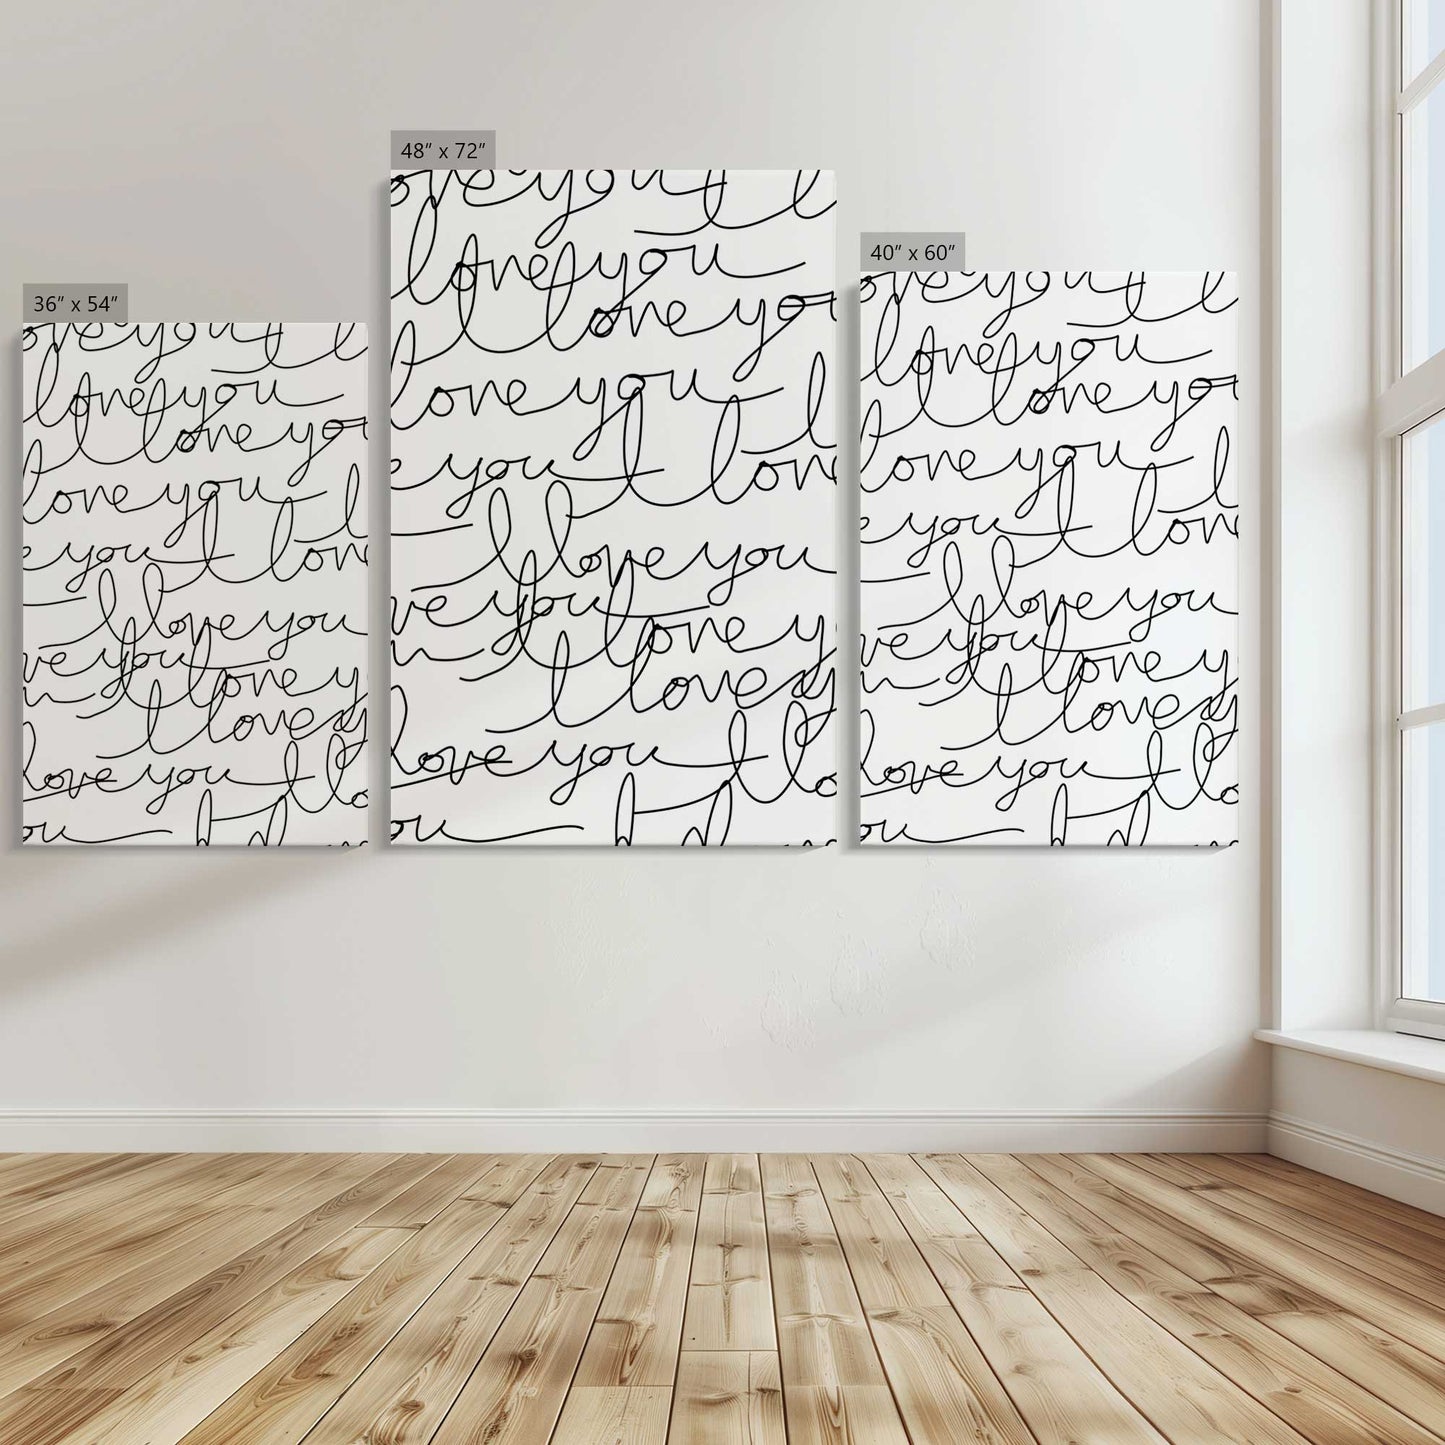 36” x 54”
ove you I l
love you
I love yo
love you l
e you I love
I love you
ve you I love y
u I love y
love you I lo
ou
48” x 72”
ove you I l
love you
I love yo
love you l
e you I love
I love you
ve you I love y
u I love y
love you I lo
ou
40” x 60”
ove you I l
love you
I love yo
love you l
e you I love
I love you
ve you I love y
u I love y
love you I lo
ou